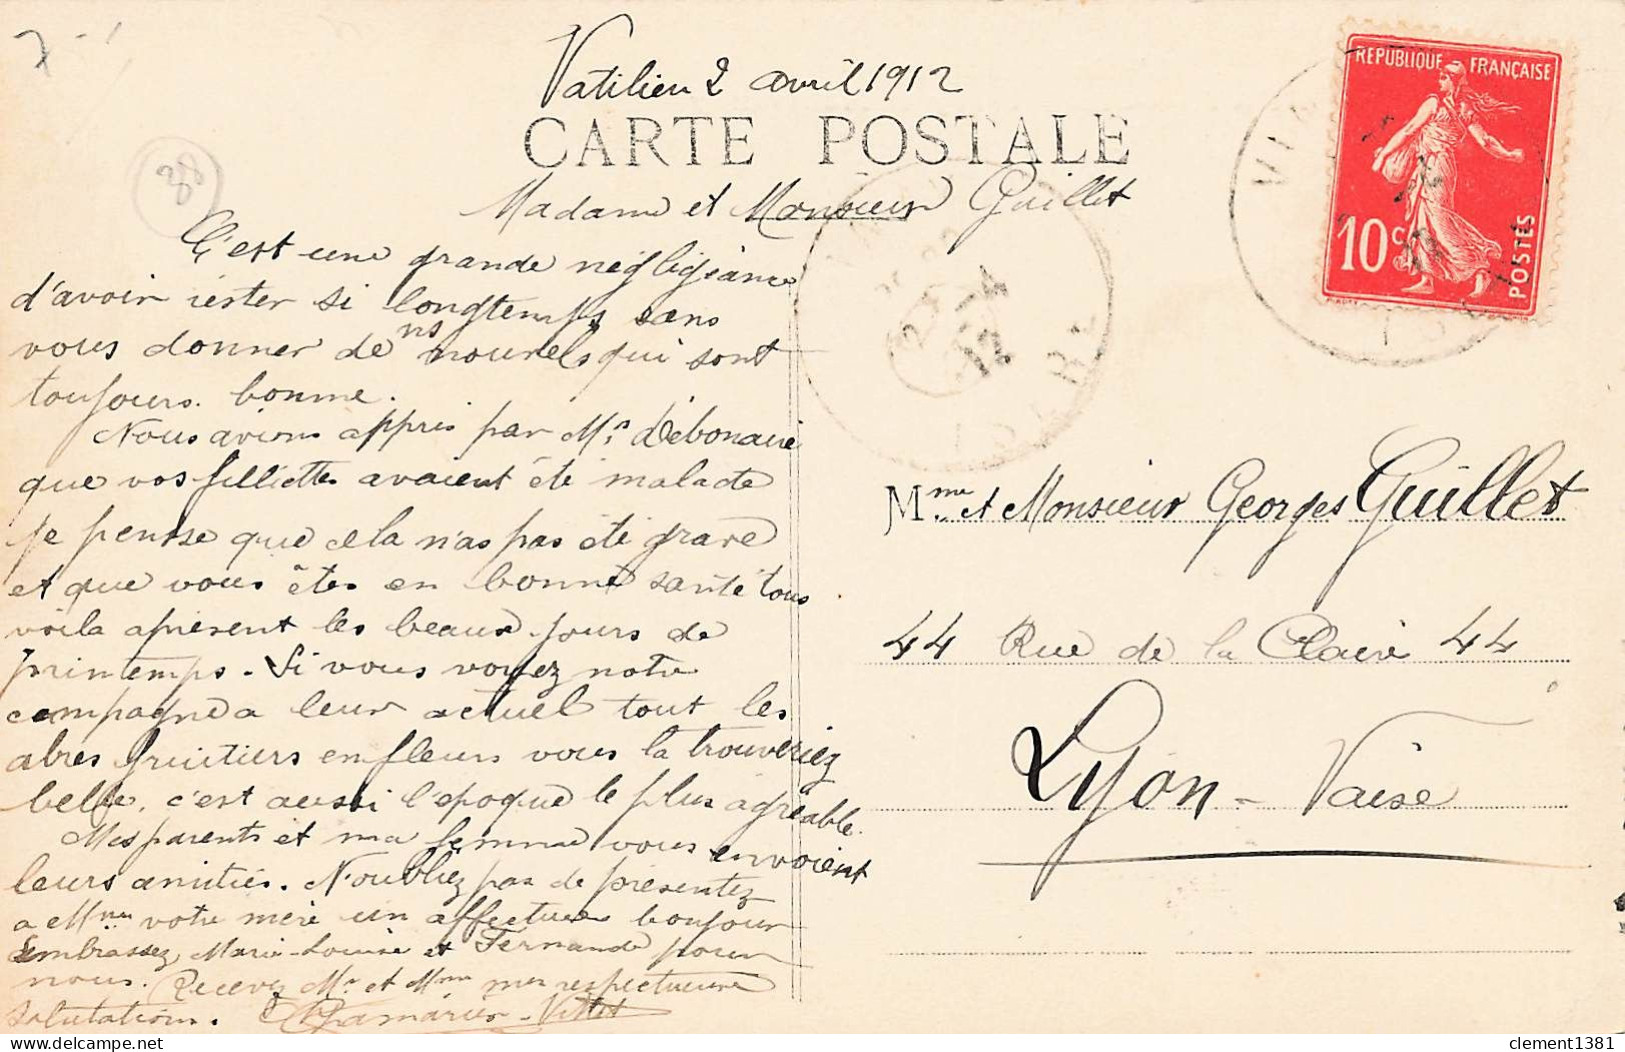 Vatilieu 2 avril 1912
CARTE POSTALE
Madame et Monsieur Guillet
C'est une grande négligeance
d'avoir rester si longtemps sans
vous donner de nos nouvels qui sont
toujours bonne.
Nous avions appris par Mr Débonaire
que vos filliettes avaient été malade
je pense que cela n'as pas été grave
et que vous êtes en bonne santé tous
voila apresent les beaux jours de
printemps. Si vous voyez notre
compagne a leur actuel tout les
abres fruitiers en fleurs vous la trouveriez
belle, c'est aussi l'epoque le plus agréable.
Mes parents et ma femme vous envoient
leurs amitiés. N'oubliez pas de présentez
a Mme votre mère un affectueux bonjour
Embrassez Marie-Louise et Fernande pour
nous. Recevez Mr et Mme mes respectueuse
salutations.
REPUBLIQUE FRANÇAISE
10 c
POSTES
VIN
2 -4
12
Mme et Monsieur Georges Guillet
44 Rue de la Claire 44
Lyon - Vaise
38
delcampe.net
clement1381